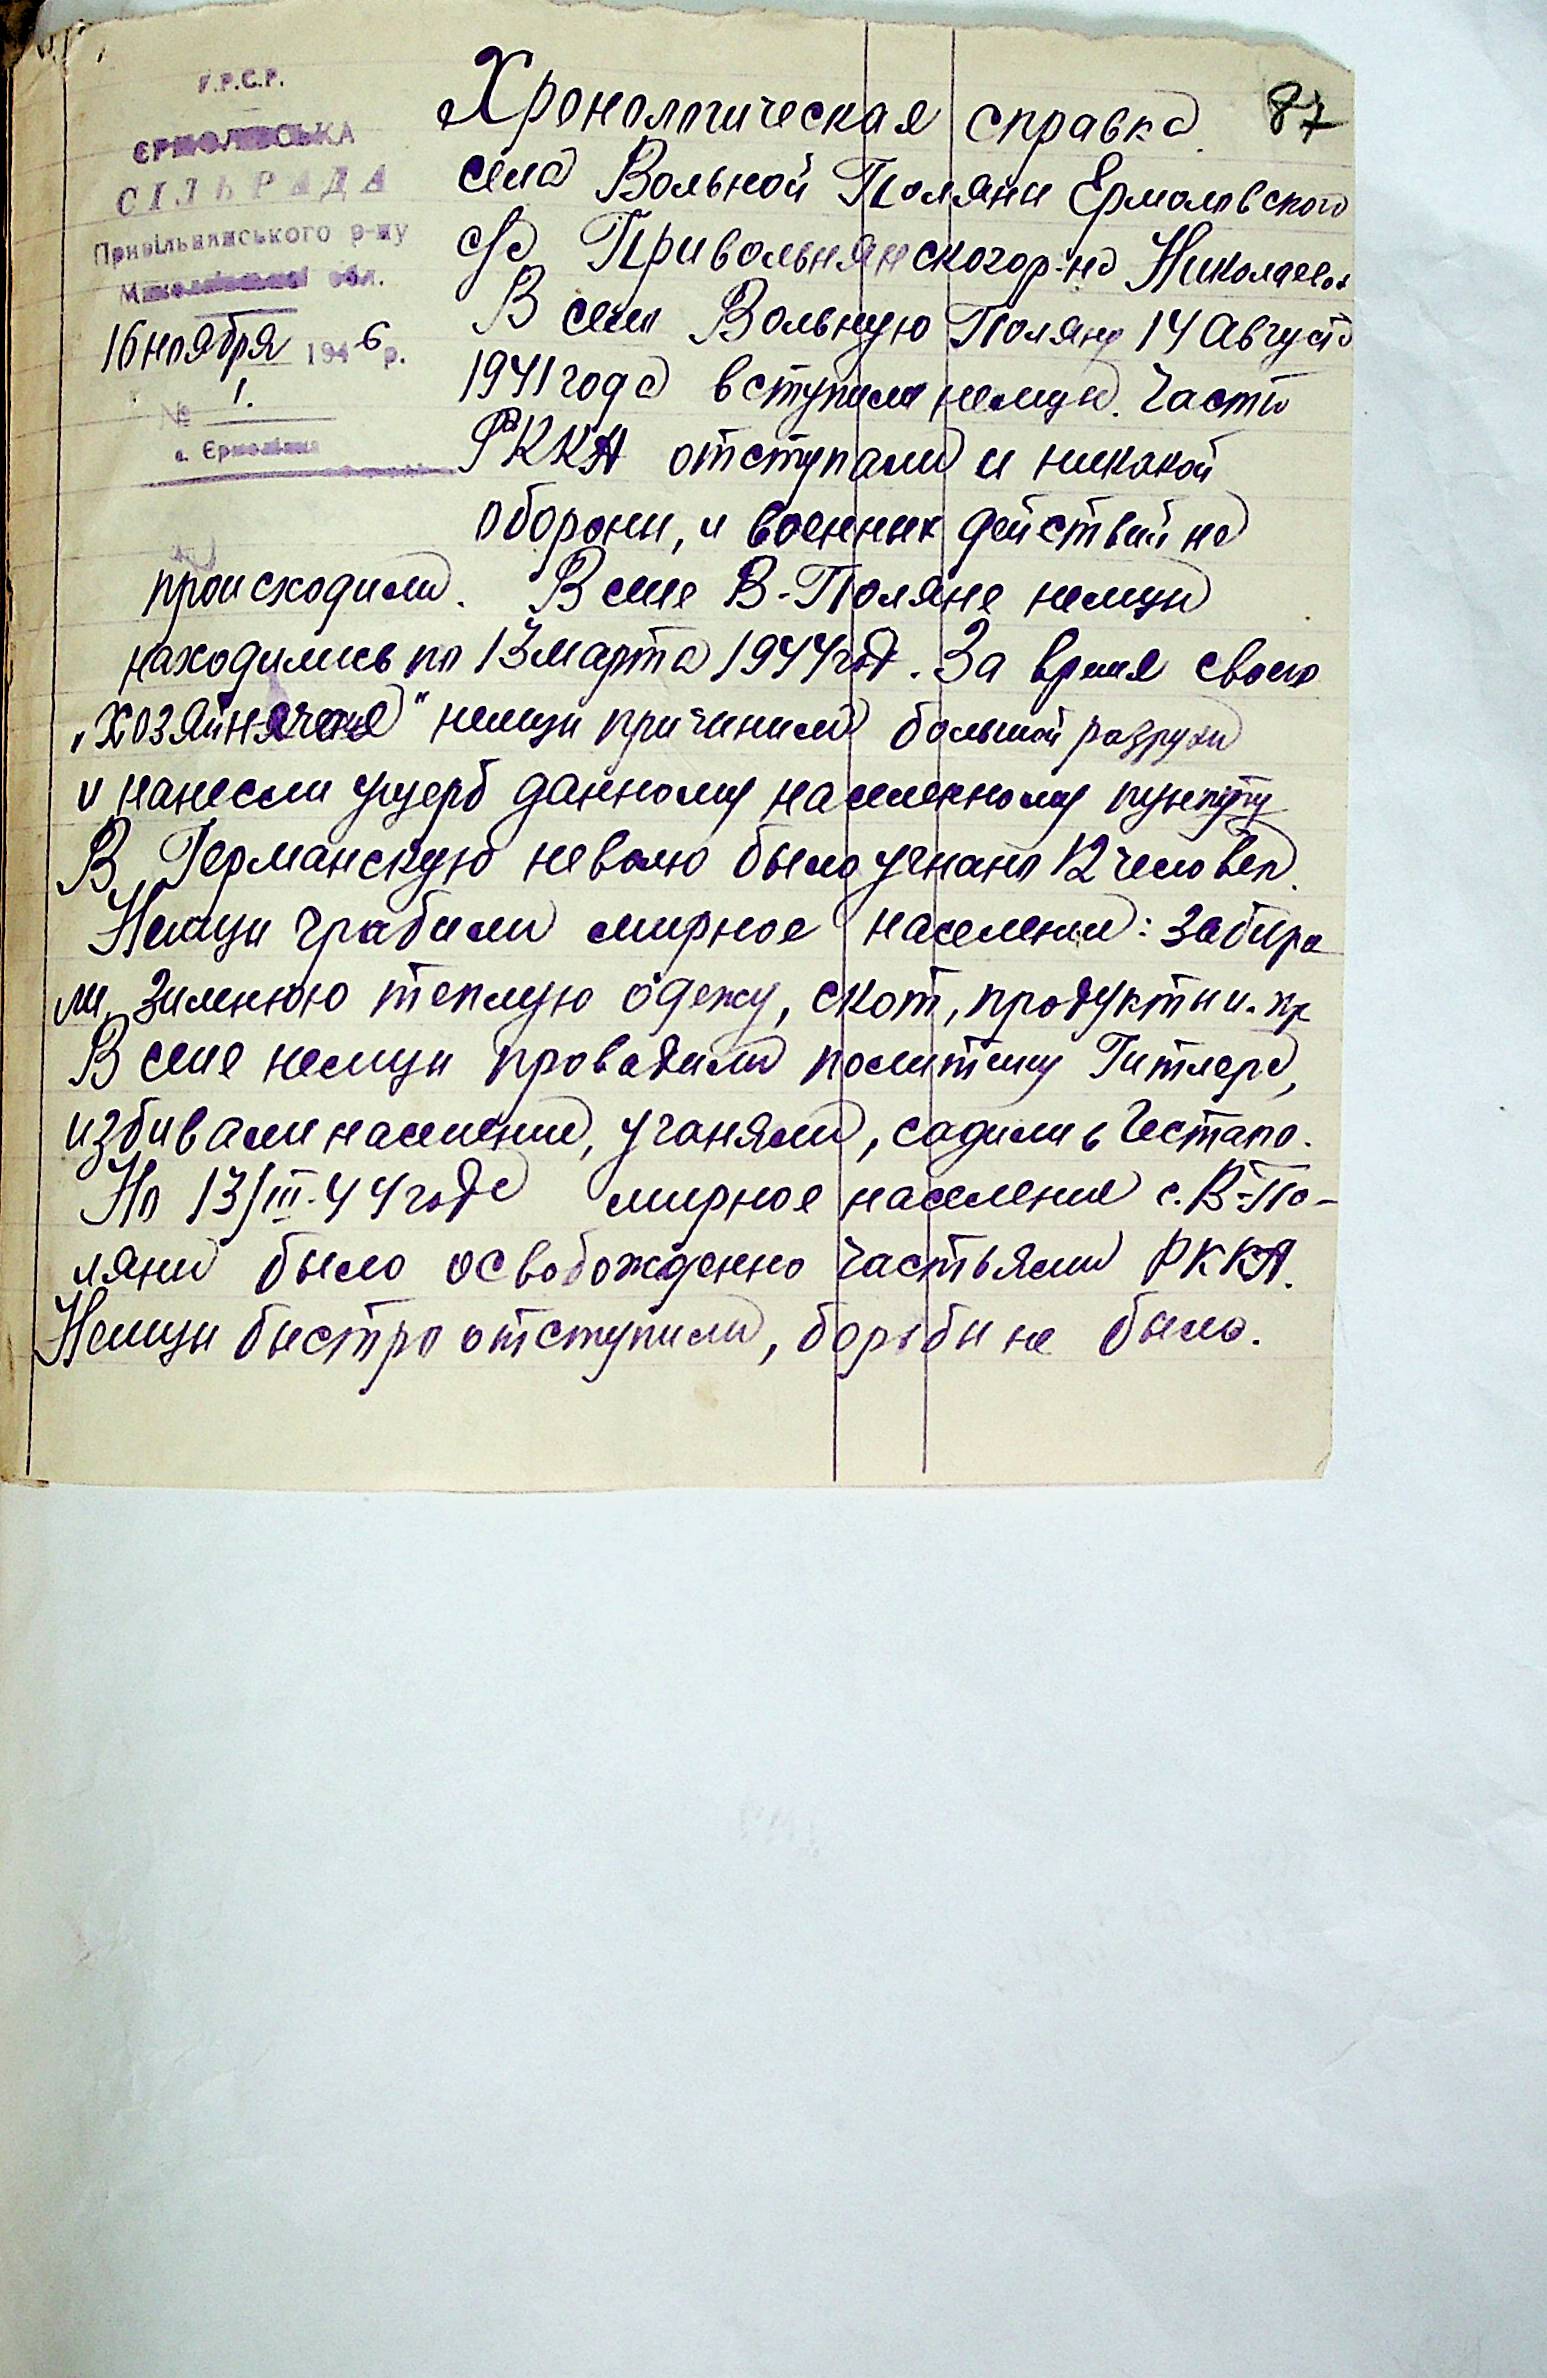 У.Р.С.Р.
ЄРМОЛІВСЬКА
СІЛЬРАДА
Привільнянського р-ну
Миколаївської обл.
16 ноября 1946 р.
№ 1.
с. Єрмолівка
87
Хронологическая справка
села Вольной Поляни Ермоловского
с/с Привольнянского р-на Николаевск
В село Вольную Поляну 14 Августа
1941 года вступили немцы. Части
РККА отступали и никакой
оборони, и военних действий не
происходили. В селе В-Поляне немцы
находились по 13 марта 1944 год. За время своего
„хозяйначанья" немци причинили большой разрухи
и нанесли ущерб данному населенному пункту
В Германскую неволю было угнано 12 человек.
Немци грабили мирное население: забира
ли зимнюю теплую одежу, скот, продукти и. пр
В селе немци проводили политику Гитлера,
избивали население, угоняли, садили в Гестапо.
На 13/III-44 года мирное население с. В-По-
ляни было освобожденно частьями РККА.
Немци бистро отступили, борьби не было.